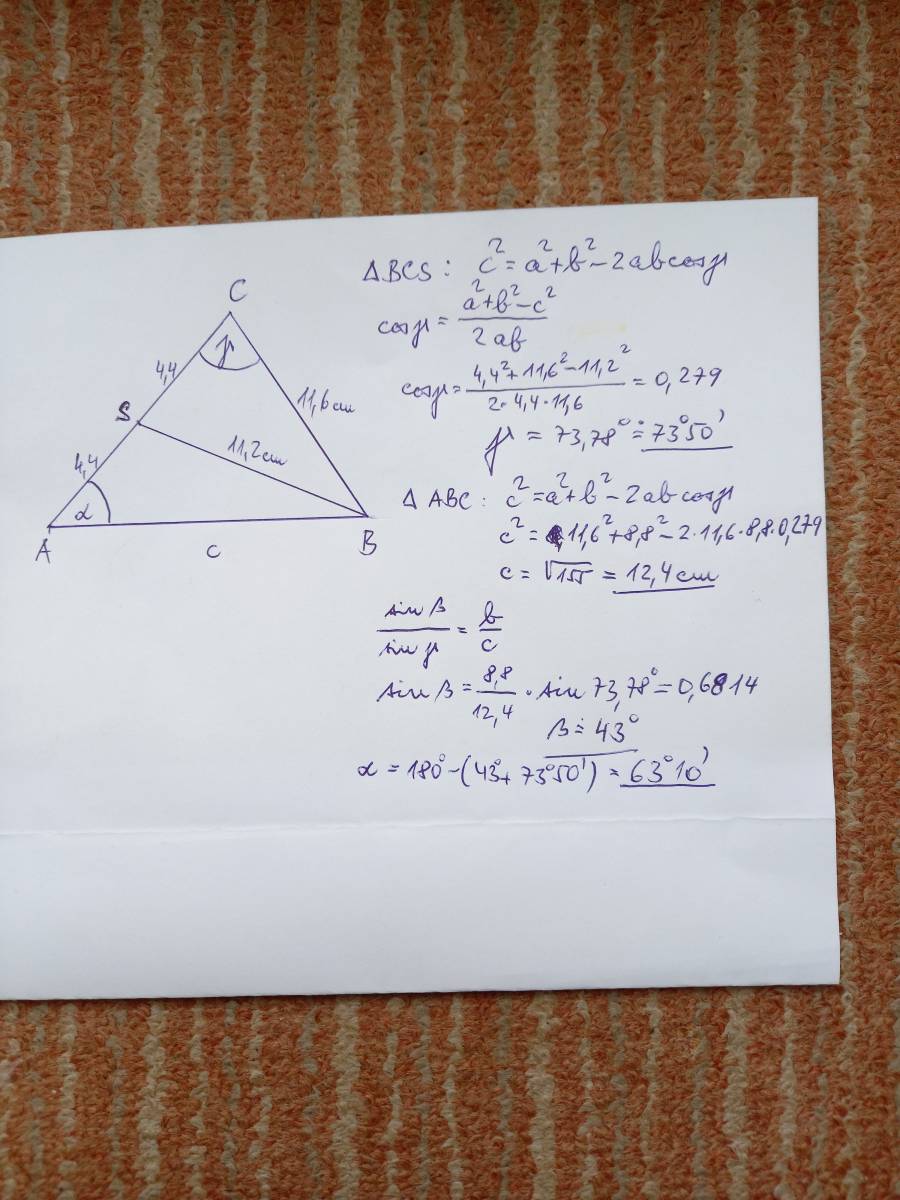 C
γ
4,4
11,6 cm
S
11,2 cm
4,4
α
A
c
B
Δ BCS : c² = a² + b² - 2ab cos γ
cos γ = (a² + b² - c²) / 2ab
cos γ = (4,4² + 11,6² - 11,2²) / (2·4,4·11,6) = 0,279
γ = 73,78° ≐ 73°50'
Δ ABC : c² = a² + b² - 2ab cos γ
c² = 11,6² + 8,8² - 2·11,6·8,8·0,279
c = √155 = 12,4 cm
sin β / sin γ = b / c
sin β = 8,8 / 12,4 · sin 73,78° = 0,6814
β ≐ 43°
α = 180° - (43° + 73°50') = 63°10'